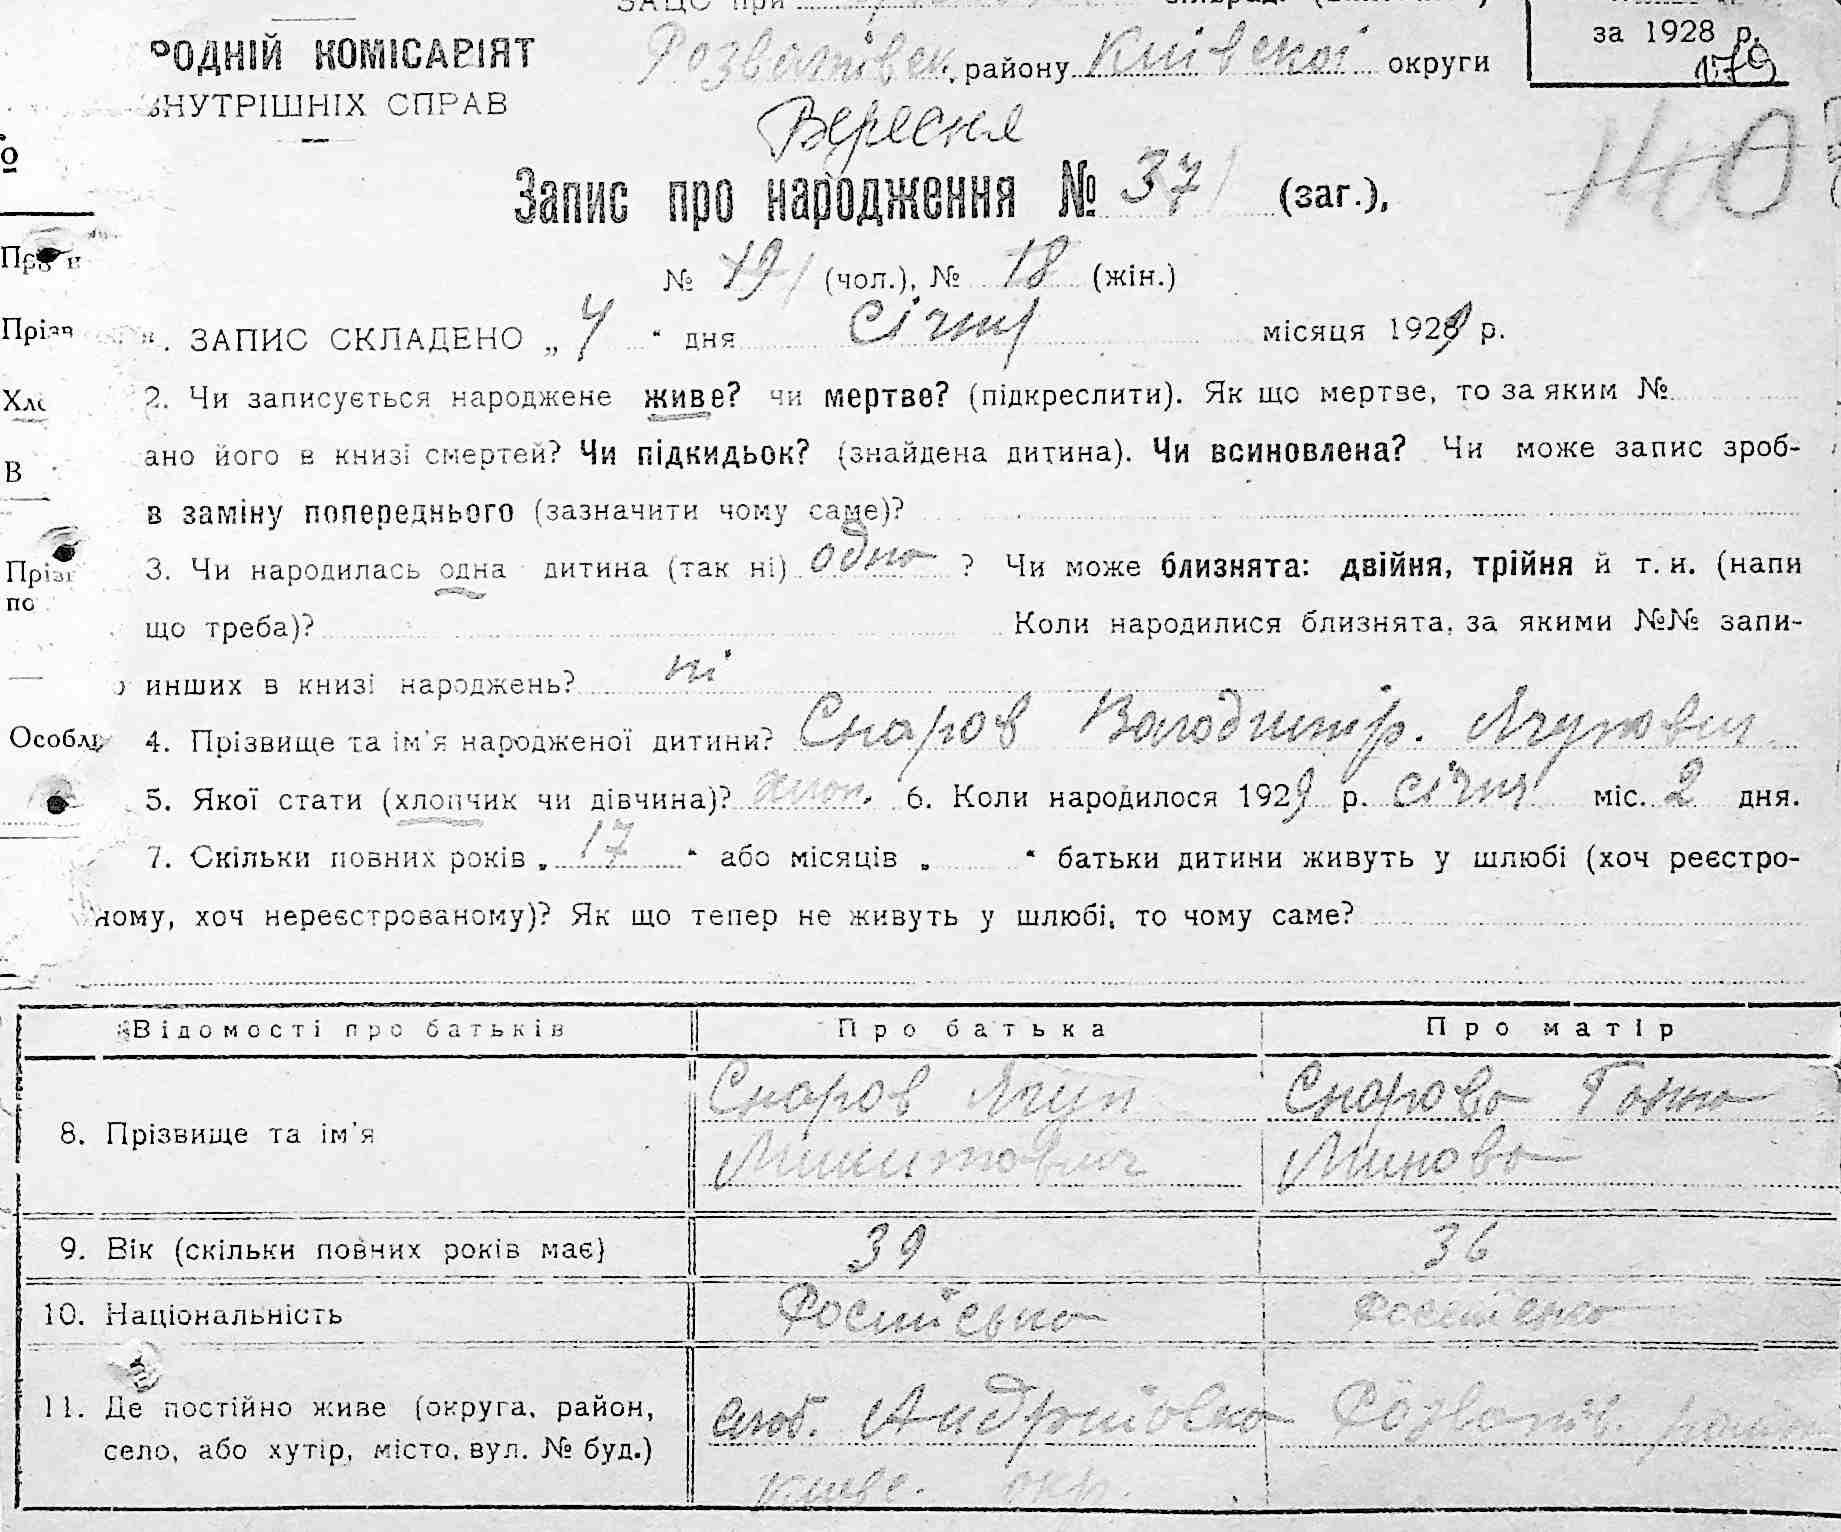 ЗАЦС при
РОДНІЙ КОМІСАРІЯТ
ВНУТРІШНІХ СПРАВ
Розважівськ. району Київської округи
за 1928 р.
179
Вересня
Запис про народження № 37 (заг.),
№ 19 (чол.), № 18 (жін.)
. ЗАПИС СКЛАДЕНО „ 4 " дня Січня місяця 1929 р.
2. Чи записується народжене живе? чи мертве? (підкреслити). Як що мертве, то за яким №
ано його в книзі смертей? Чи підкидьок? (знайдена дитина). Чи всиновлена? Чи може запис зроб-
в заміну попереднього (зазначити чому саме)?
3. Чи народилась одна дитина (так ні) одна ? Чи може близнята: двійня, трійня й т. и. (напи
що треба)? Коли народилися близнята, за якими №№ запи-
о инших в книзі народжень? ні
4. Прізвище та ім'я народженої дитини? Снаров Володимір. Ягупович
5. Якої стати (хлопчик чи дівчина)? хлоп. 6. Коли народилося 1929 р. січня міс. 2 дня.
7. Скільки повних років „ 17 " або місяців „ " батьки дитини живуть у шлюбі (хоч реєстро-
ному, хоч нереєстрованому)? Як що тепер не живуть у шлюбі, то чому саме?
Відомості про батьків Про батька Про матір
8. Прізвище та ім'я
Снаров Ягуп
Микитович
Снарова Ганна
Минова
9. Вік (скільки повних років має) 39 36
10. Національність Російська Російська
11. Де постійно живе (округа, район,
село, або хутір, місто, вул. № буд.)
слоб. Андріївка Розважів. район
Київс. окр.
Прізв
В
Прізв
по
Особл